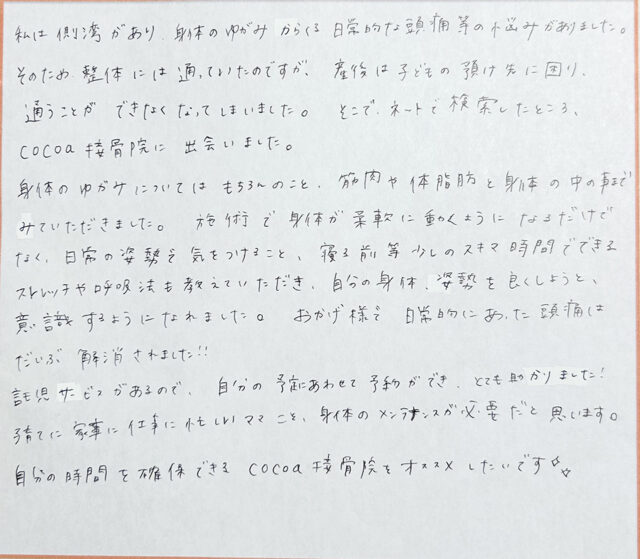 私は側湾があり、身体のゆがみからくる日常的な頭痛等の悩みがありました。
そのため、整体には通っていたのですが、産後は子どもの預け先に困り、
通うことができなくなってしまいました。そこで、ネットで検索したところ、
cocoa接骨院に出会いました。
身体のゆがみについてはもちろんのこと、筋肉や体脂肪と身体の中の事まで
みていただきました。施術で身体が柔軟に動くようになるだけで
なく、日常の姿勢で気をつけること、寝る前等少しのスキマ時間でできる
ストレッチや呼吸法も教えていただき、自分の身体、姿勢を良くしようと、
意識するようになれました。おかげ様で日常的にあった頭痛は
だいぶ解消されました!!
託児サービスがあるので、自分の予定にあわせて予約ができ、とても助かりました!
子育てに家事に仕事に忙しいママこそ、身体のメンテナンスが必要だと思います。
自分の時間を確保できるcocoa接骨院をオススメしたいです☆☆